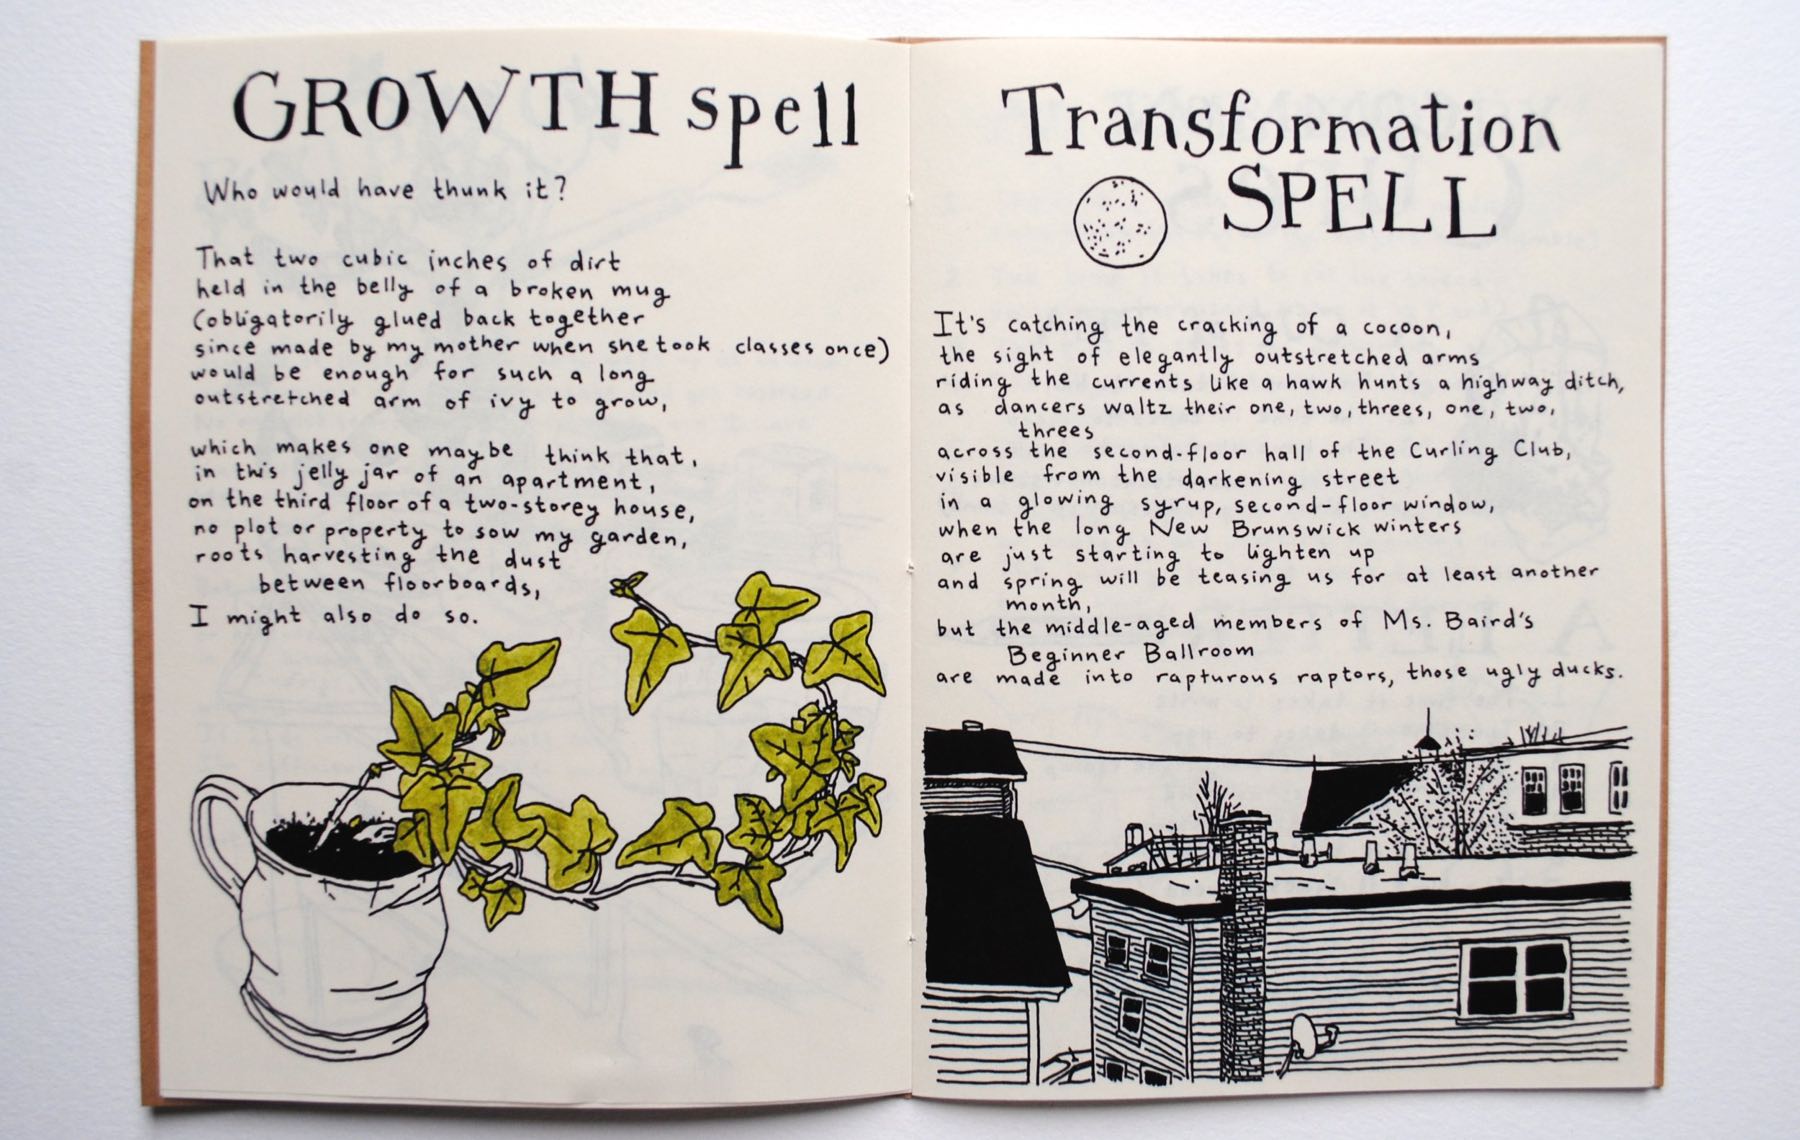 GROWTH spell
Who would have thunk it?
That two cubic inches of dirt
held in the belly of a broken mug
(obligatorily glued back together
since made by my mother when she took classes once)
would be enough for such a long
outstretched arm of ivy to grow,
which makes one maybe think that,
in this jelly jar of an apartment,
on the third floor of a two-storey house,
no plot or property to sow my garden,
roots harvesting the dust
between floorboards,
I might also do so.
Transformation
SPELL
It's catching the cracking of a cocoon,
the sight of elegantly outstretched arms
riding the currents like a hawk hunts a highway ditch,
as dancers waltz their one, two, threes, one, two,
threes
across the second-floor hall of the Curling Club,
visible from the darkening street
in a glowing syrup, second-floor window,
when the long New Brunswick winters
are just starting to lighten up
and spring will be teasing us for at least another
month,
but the middle-aged members of Ms. Baird's
Beginner Ballroom
are made into rapturous raptors, those ugly ducks.